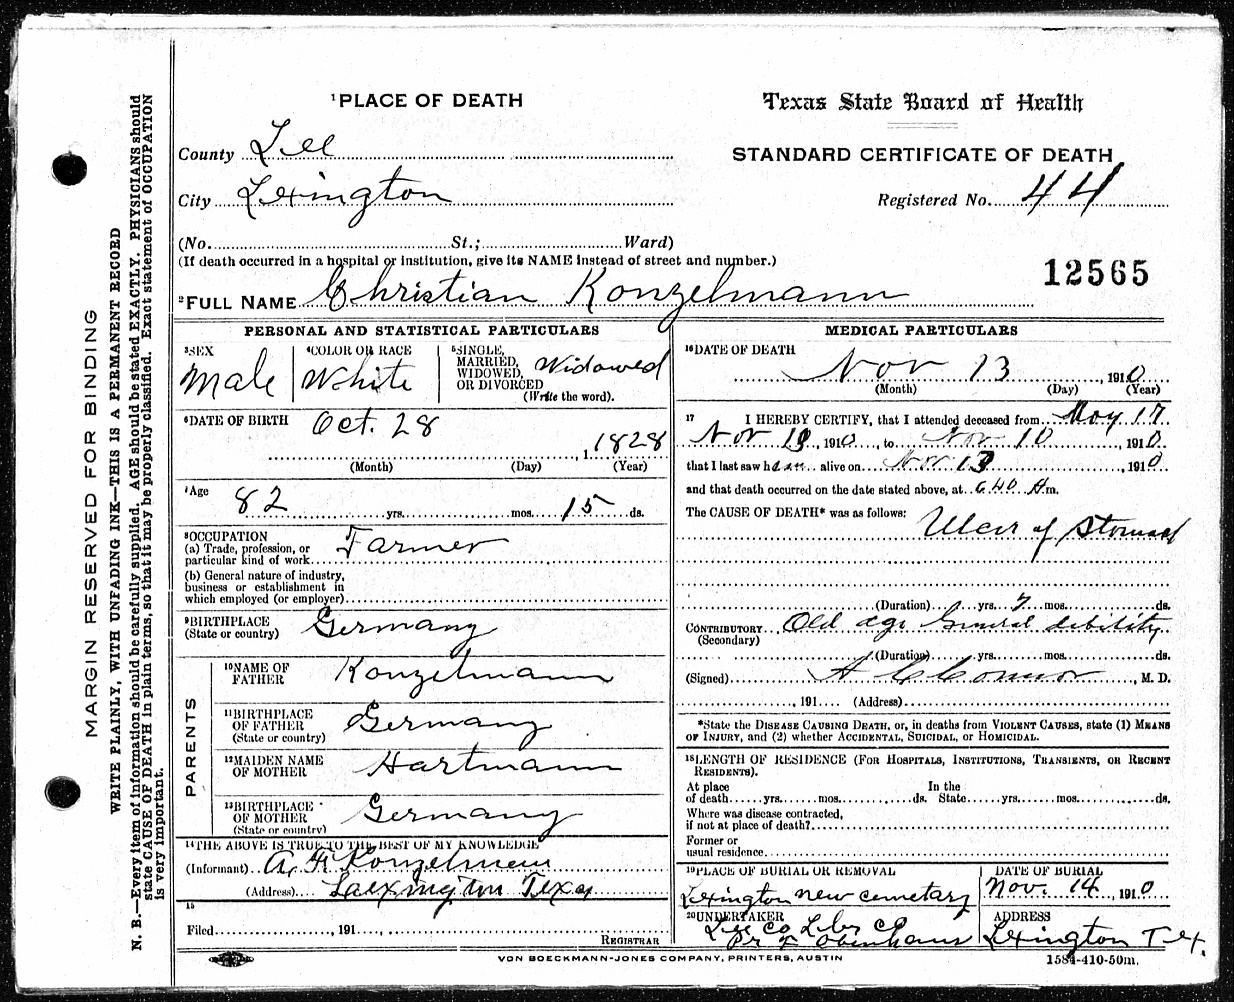 MARGIN RESERVED FOR BINDING
WRITE PLAINLY, WITH UNFADING INK—THIS IS A PERMANENT RECORD
N. B.—Every item of information should be carefully supplied. AGE should be stated EXACTLY. PHYSICIANS should
state CAUSE OF DEATH in plain terms, so that it may be properly classified. Exact statement of OCCUPATION
is very important.
1PLACE OF DEATH
County Lee
City Lexington
(No. St.; Ward)
(If death occurred in a hospital or institution, give its NAME instead of street and number.)
Texas State Board of Health
STANDARD CERTIFICATE OF DEATH
Registered No. 44
12565
2FULL NAME Christian Konzelmann
PERSONAL AND STATISTICAL PARTICULARS
3SEX
Male
4COLOR OR RACE
White
5SINGLE,
MARRIED,
WIDOWED,
OR DIVORCED
(Write the word).
Widowed
6DATE OF BIRTH Oct. 28, 1828
(Month) (Day) (Year)
7Age
82 yrs. mos. 15 ds.
8OCCUPATION
(a) Trade, profession, or
particular kind of work Farmer
(b) General nature of industry,
business or establishment in
which employed (or employer)
9BIRTHPLACE
(State or country) Germany
PARENTS
10NAME OF
FATHER Konzelmann
11BIRTHPLACE
OF FATHER
(State or country) Germany
12MAIDEN NAME
OF MOTHER Hartmann
13BIRTHPLACE
OF MOTHER
(State or country) Germany
14THE ABOVE IS TRUE TO THE BEST OF MY KNOWLEDGE
(Informant) A. F. Konzelmann
(Address) Laexington Texas
15
Filed , 191 ,
REGISTRAR
MEDICAL PARTICULARS
16DATE OF DEATH
Nov 13, 1910
(Month) (Day) (Year)
17 I HEREBY CERTIFY, that I attended deceased from May 17
Nov , 1910, to Nov 10 1910
that I last saw him alive on Nov 13 , 1910
and that death occurred on the date stated above, at 640 A m.
The CAUSE OF DEATH* was as follows: Ulcer of Stomach
(Duration) yrs. 7 mos. ds.
CONTRIBUTORY Old age General debility
(Secondary)
(Duration) yrs. mos. ds.
(Signed) Connor, M. D.
, 191 (Address)
*State the DISEASE CAUSING DEATH, or, in deaths from VIOLENT CAUSES, state (1) MEANS
OF INJURY, and (2) whether ACCIDENTAL, SUICIDAL, or HOMICIDAL.
18LENGTH OF RESIDENCE (FOR HOSPITALS, INSTITUTIONS, TRANSIENTS, OR RECENT
RESIDENTS).
At place In the
of death yrs. mos. ds. State yrs. mos. ds.
Where was disease contracted,
if not at place of death?
Former or
usual residence
19PLACE OF BURIAL OR REMOVAL
Lexington new cemetary
DATE OF BURIAL
Nov. 14, 1910
20UNDERTAKER
Lee Co Lbr Co
Pr F Obenhaus
ADDRESS
Lexington Tex.
VON BOECKMANN-JONES COMPANY, PRINTERS, AUSTIN
1584-410-50m.